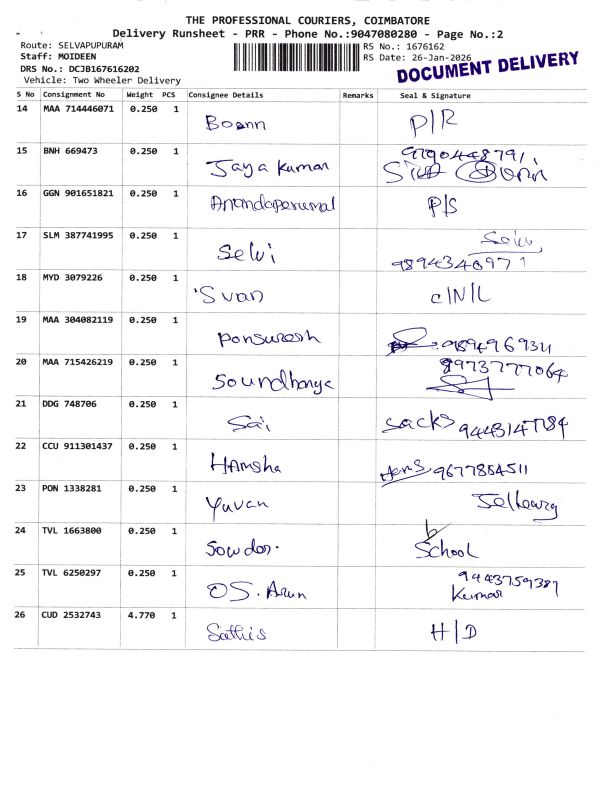 THE PROFESSIONAL COURIERS, COIMBATORE
Delivery Runsheet - PRR - Phone No.:9047080280 - Page No.:2
Route: SELVAPUPURAM
RS No.: 1676162
Staff: MOIDEEN
RS Date: 26-Jan-2026
DRS No.: DCJB167616202
Vehicle: Two Wheeler Delivery
DOCUMENT DELIVERY
S No Consignment No Weight PCS Consignee Details Remarks Seal & Signature
14 MAA 714446071 0.250 1 P/R
15 BNH 669473 0.250 1 Jaya Kumar
16 GGN 901651821 0.250 1 Anandaperumal P/S
17 SLM 387741995 0.250 1 Selvi Selvi
9894346971
18 MYD 3079226 0.250 1 C/N/L
19 MAA 304082119 0.250 1 Ponsuresh
20 MAA 715426219 0.250 1 Soundhanya
21 DDG 748706 0.250 1 Sai
22 CCU 911301437 0.250 1 HAmsha 9677864511
23 PON 1338281 0.250 1 Yuvan
24 TVL 1663800 0.250 1 School
25 TVL 6250297 0.250 1 OS. Arun 9443759387
Kumar
26 CUD 2532743 4.770 1 Sathis H/D